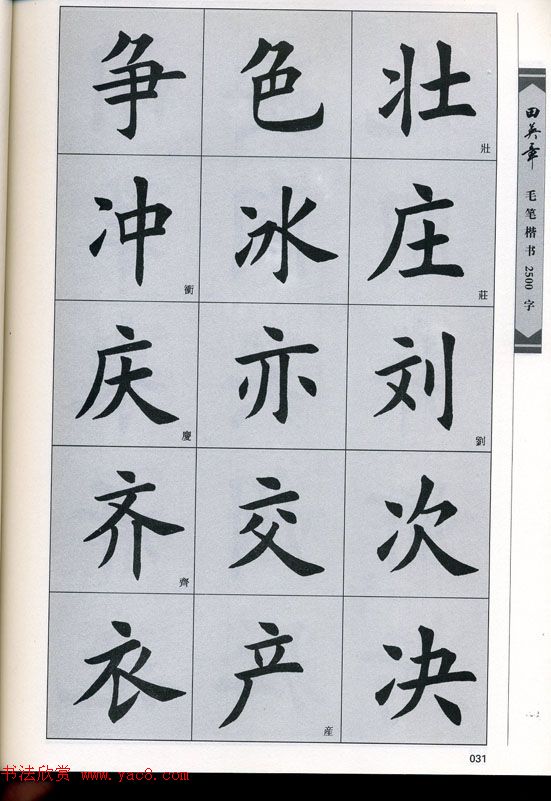 争 色 壮壯
冲衝 冰 庄莊
庆慶 亦 刘劉
齐齊 交 次
衣 产産 决
田英章 毛笔楷书2500字
031
书法欣赏 www.yac8.com